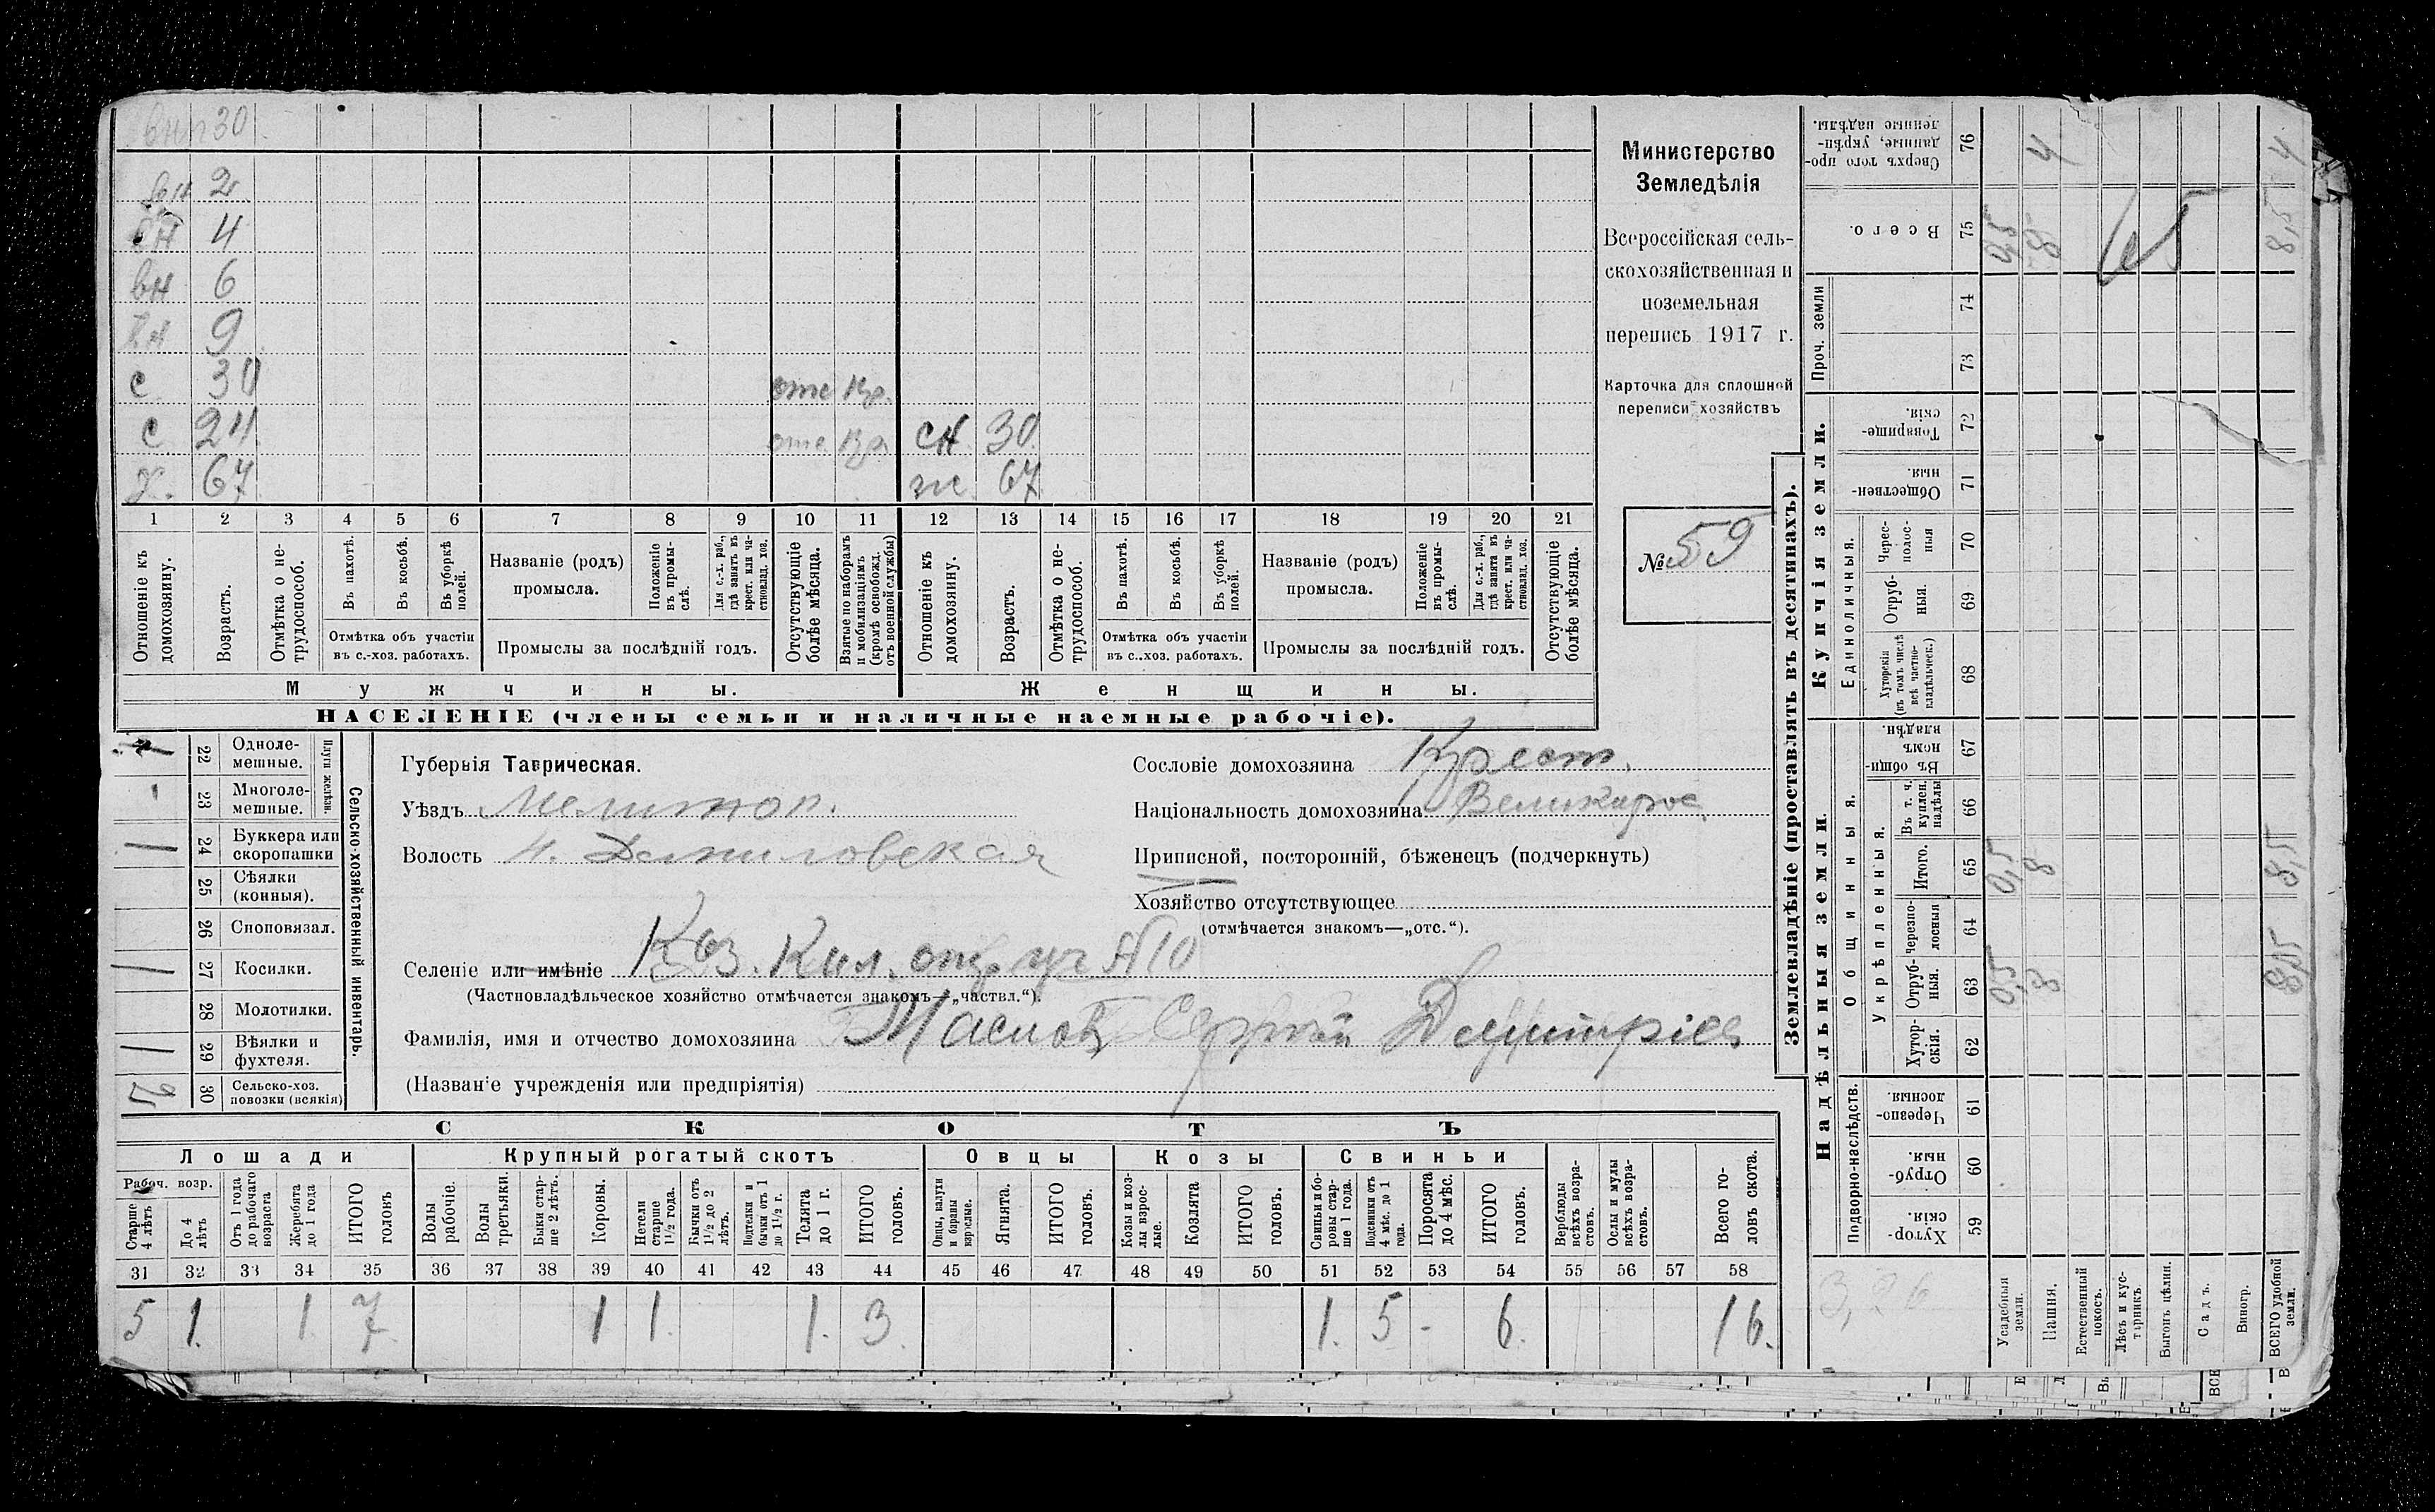 30
2
4
вн 6
вн 9
с 30 отс Кр.
с 24 отс. Вр. сн 30.
х. 67 ж. 67
1 2 3 4 5 6 7 8 9 10 11 12 13 14 15 16 17 18 19 20 21
Отношеніе къ домохозяину.
Возрастъ.
Отмѣтка о не-трудоспособ.
Въ пахотѣ.
Въ косьбѣ.
Въ уборкѣ полей.
Отмѣтка объ участіи
въ с.-хоз. работахъ.
Названіе (родъ)
промысла.
Положеніе въ промы-слѣ.
Для с.-х. раб., гдѣ занятъ въ крест. или ча-стновлад. хоз.
Промыслы за послѣдній годъ.
Отсутствующіе болѣе мѣсяца.
Взятые по наборамъ и мобилизаціямъ (кромѣ освобожд. отъ военной службы)
Отношеніе къ домохозяину.
Возрастъ.
Отмѣтка о не-трудоспособ.
Въ пахотѣ.
Въ косьбѣ.
Въ уборкѣ полей.
Отмѣтка объ участіи
въ с..хоз. работахъ.
Названіе (родъ)
промысла.
Положеніе въ промы-слѣ.
Для с.-х. раб., гдѣ занята въ крест. или ча-стновлад. хоз.
Промыслы за послѣдній годъ.
Отсутствующіе болѣе мѣсяца.
Мужчины.
Женщины.
НАСЕЛЕНІЕ (члены семьи и наличные наемные рабочіе).
Министерство
Земледѣлія
Всероссійская сель-
скохозяйственная и
поземельная
перепись 1917 г.
Карточка для сплошной
переписи хозяйствъ
№ 59
22 Одноле-мешные.
23 Многоле-мешные.
Плуги желѣзн.
24 Буккера или скоропашки
25 Сѣялки (конныя).
26 Сноповязал.
27 Косилки.
28 Молотилки.
29 Вѣялки и фухтеля.
30 Сельско-хоз. повозки (всякія)
Сельско-хозяйственный инвентарь.
Губернія Таврическая.
Уѣздъ Мелитоп.
Волость Н. Даниловская
Селеніе или имѣніе Каз. Кил. отр. уч №10
(Частновладѣльческое хозяйство отмѣчается знакомъ—„частвл.“).
Фамилія, имя и отчество домохозяина Сергѣй Дмитріев
(Названіе учрежденія или предпріятія)
Сословіе домохозяина Крест.
Національность домохозяина Великорос.
Приписной, посторонній, бѣженецъ (подчеркнуть)
Хозяйство отсутствующее
(отмѣчается знакомъ—„отс.“).
СКОТЪ
Лошади
Крупный рогатый скотъ
Овцы
Козы
Свиньи
Рабоч. возр.
Старше 4 лѣтъ
До 4 лѣтъ
Отъ 1 года до рабочаго возраста
Жеребята до 1 года
ИТОГО головъ
Волы рабочіе.
Волы третьяки.
Быки стар-ше 2 лѣтъ.
Коровы.
Нетели старше 1½ года.
Бычки отъ 1½ до 2 лѣтъ.
Подтелки и бычки отъ 1 до 1½ г.
Телята до 1 г.
ИТОГО головъ.
Овцы, валухи и бараны взрослые.
Ягнята.
ИТОГО головъ.
Козы и коз-лы взрос-лые.
Козлята
ИТОГО головъ.
Свиньи и бо-ровы стар-ше 1 года.
Подсвинки отъ 4 мѣс. до 1 года.
Поросята до 4 мѣс.
ИТОГО головъ.
Верблюды всѣхъ возра-стовъ.
Ослы и мулы всѣхъ возра-стовъ.
Всего го-ловъ скота.
31 32 33 34 35 36 37 38 39 40 41 42 43 44 45 46 47 48 49 50 51 52 53 54 55 56 57 58
5 1. 1. 7. 1 1. 1. 3. 1. 5 - 6. 16.
Землевладѣніе (проставлять въ десятинахъ).
Надѣльныя земли.
Купчія земли.
Сверхъ того про-данные, укрѣп-ленные надѣлы. 76 4 4
Всего. 75 8,5
Проч. земли 74 73
Товарище-скія. 72
Обществен-ныя. 71
Единоличныя.
Черес-полос-ныя 70
Отруб-ныя. 69
Хуторскія (въ томъ числѣ всѣ частно-владѣльческ.) 68
Общинныя.
Въ общин-номъ владѣн. 67
Укрѣпленныя.
Въ т. ч. куплен. надѣлы 66
Итого. 65 0,5 8 8,5
Черезпо-лосныя 64
Отруб-ныя. 63 0,5 8 8,5
Хутор-скія. 62
Подворно-наслѣдств.
Черезпо-лосныя. 61
Отруб-ныя. 60
Хутор-скія. 59
3,26
Усадебныя земли.
Пашня.
Естественный покосъ.
Лѣсъ и кус-тарникъ.
Выгонъ цѣлин.
Садъ.
Виногр.
ВСЕГО удобной земли.